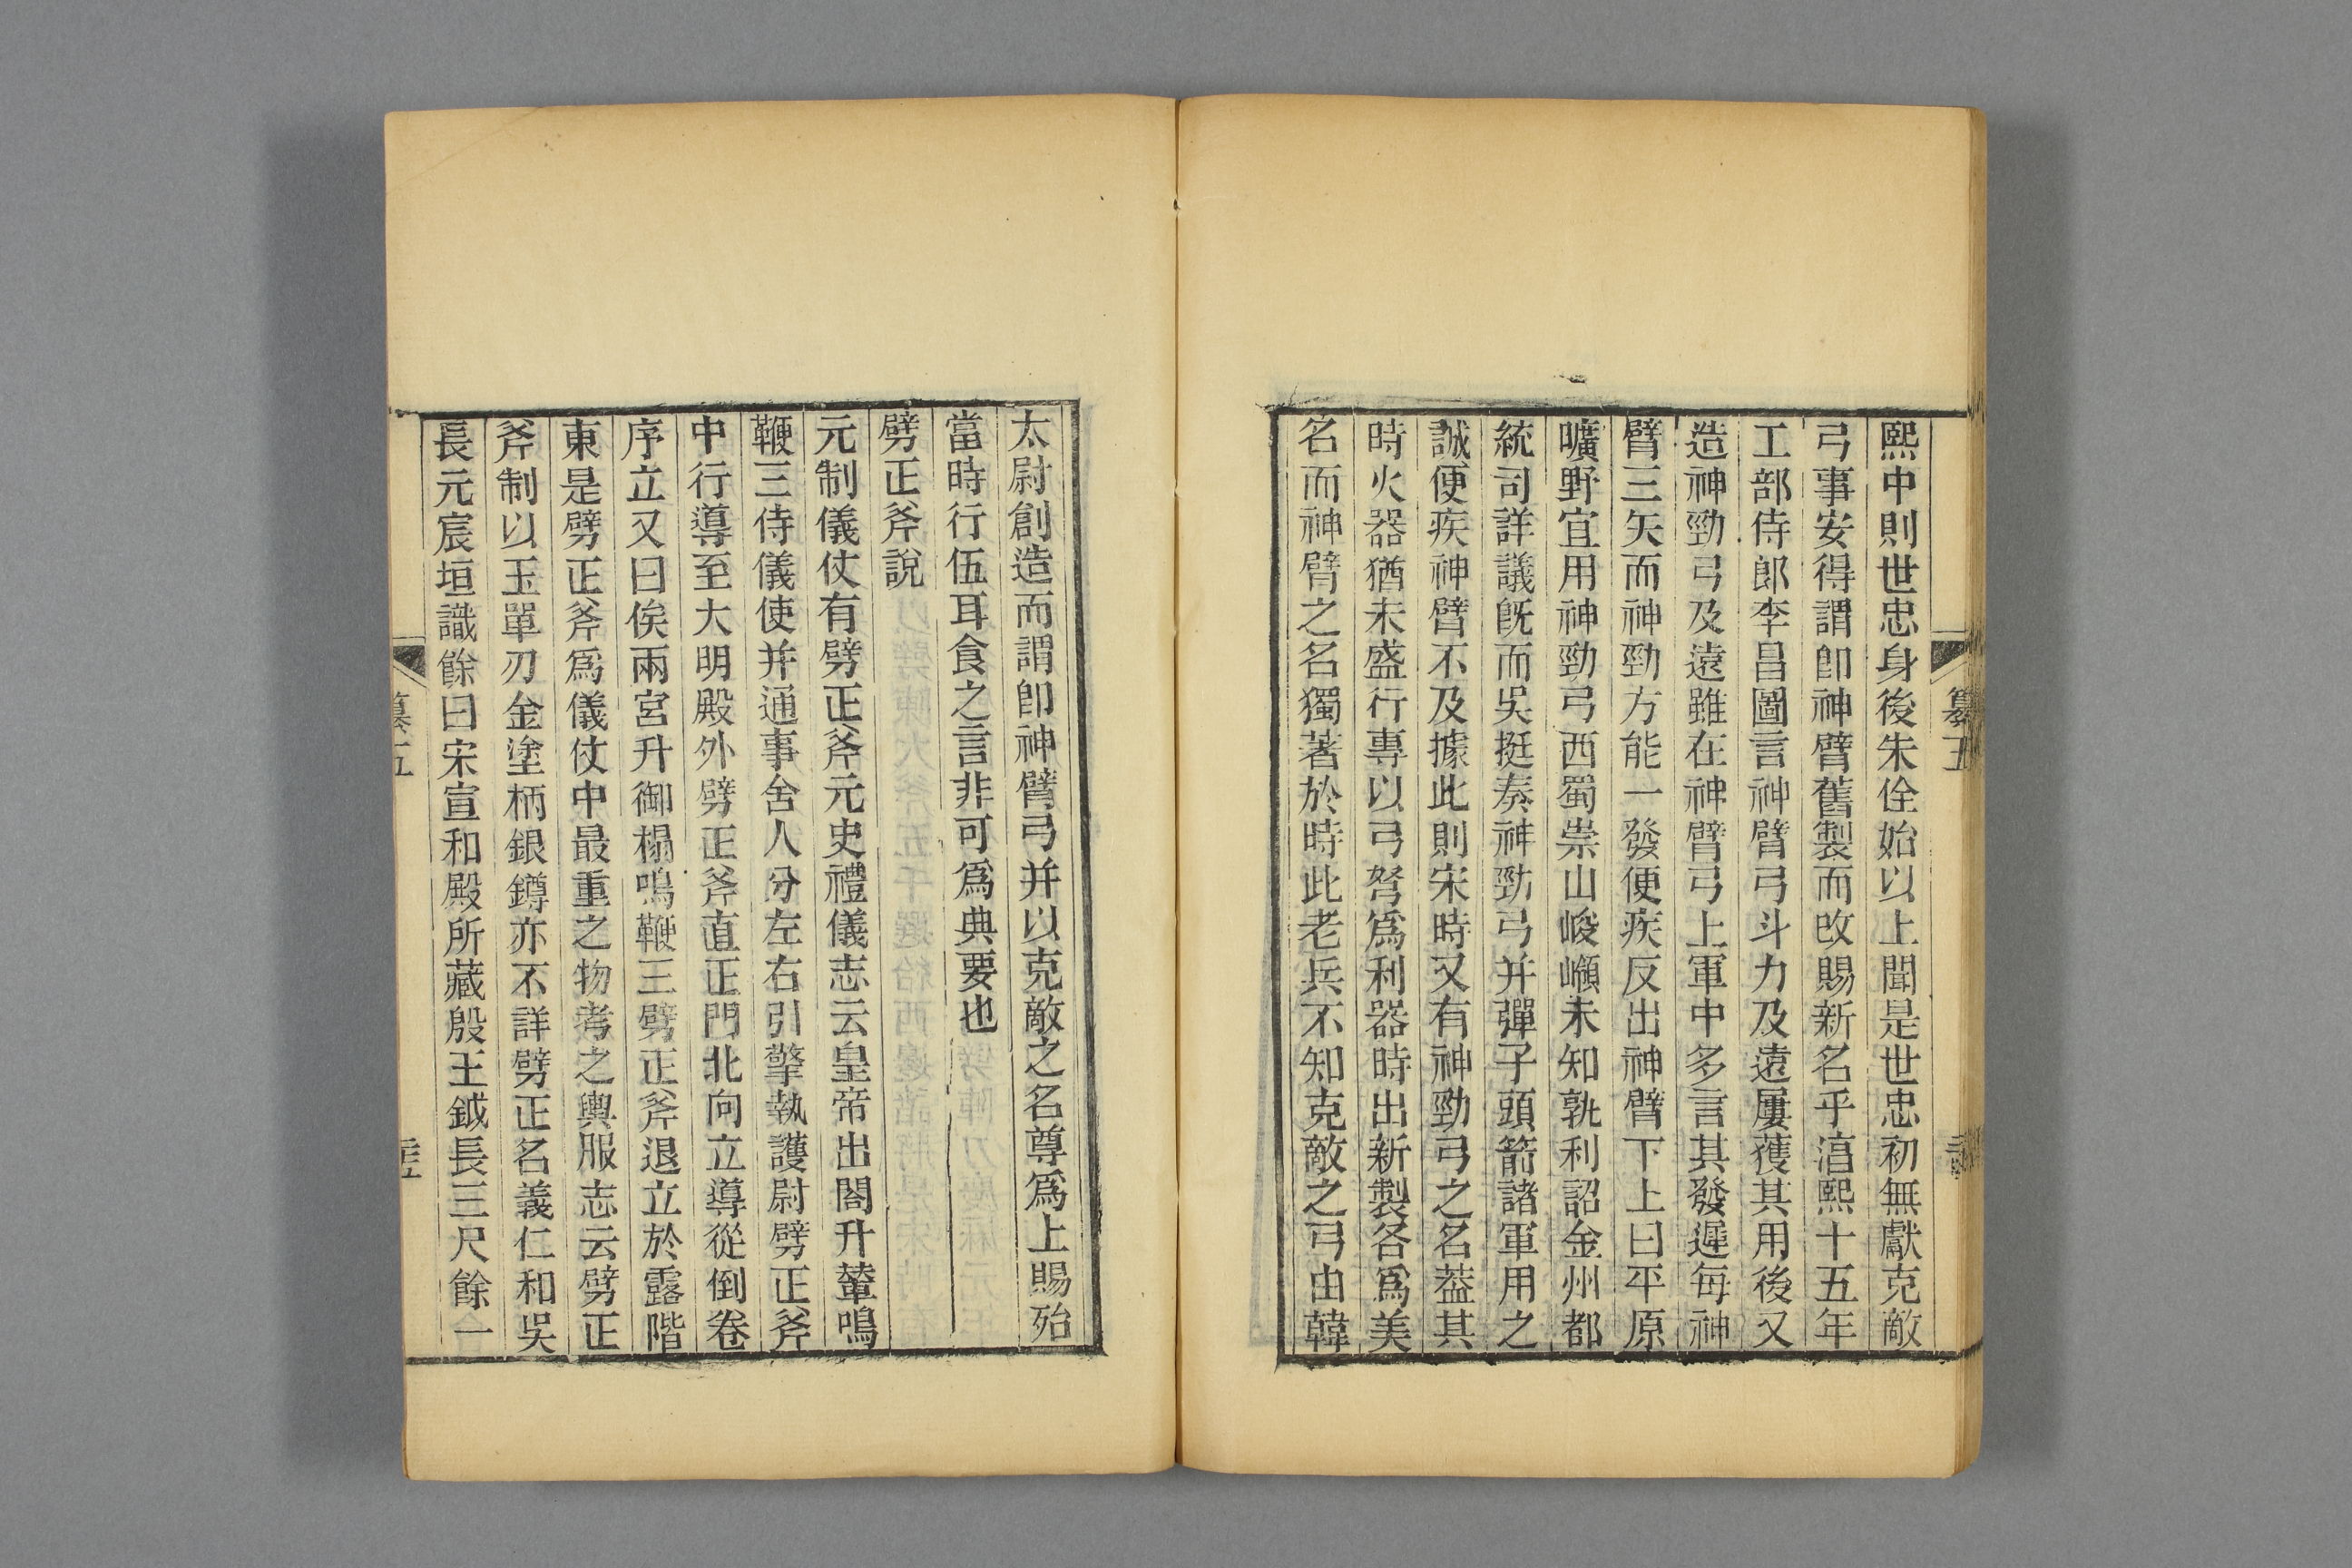 熙中則世忠身後朱佺始以上聞是世忠初無獻克敵
弓事安得謂卽神臂舊製而改賜新名乎淳熙十五年
工部侍郎李昌圖言神臂弓斗力及遠屢獲其用後又
造神勁弓及遠雖在神臂弓上軍中多言其發遲每神
臂三矢而神勁方能一發便疾反出神臂下上曰平原
曠野宜用神勁弓西蜀崇山峻嶺未知孰利詔金州都
統司詳議旣而吳挺奏神勁弓并彈子頭箭諸軍用之
誠便疾神臂不及據此則宋時又有神勁弓之名葢其
時火器猶未盛行專以弓弩爲利器時出新製各爲美
名而神臂之名獨著於時此老兵不知克敵之弓由韓
太尉創造而謂卽神臂弓并以克敵之名尊爲上賜殆
當時行伍耳食之言非可爲典要也
劈正斧說
元制儀仗有劈正斧元史禮儀志云皇帝出閤升輦鳴
鞭三侍儀使并通事舍人分左右引擎執護尉劈正斧
中行導至大明殿外劈正斧直正門北向立導從倒卷
序立又曰俟兩宮升御榻鳴鞭三劈正斧退立於露階
東是劈正斧爲儀仗中最重之物考之輿服志云劈正
斧制以玉單刃金塗柄銀鐏亦不詳劈正名義仁和吳
長元宸垣識餘曰宋宣和殿所藏殷王鉞長三尺餘一
纂五